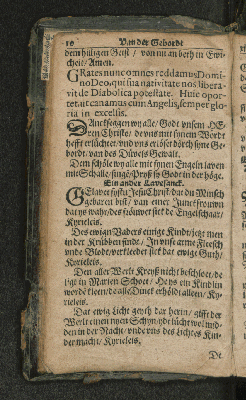 10 Van der Gebordt
dem hilligen Geist / von nu an beth in Ewi-
cheit / Amen.
GRates nunc omnes reddamus Domi-
no Deo, qui sua nativitate nos libera-
vit de Diabolica potestate. Huic opor-
tet ut canamus cum Angelis, semper glo-
ria in excelsis.
DAnckseggen wy alle / Godt unsem HE-
ren Christo / de uns mit synem Wordt
hefft erlüchtet / und uns erlöset dörch syne Ge-
bordt van des Düvels Gewalt.
Dem schöle wy alle mit synen Engeln laven
mit Schalle / singē / Pryß sy Godt in der höge.
Ein ander Lavesanck.
GElavet systu Jesu Christ / dat du Minsch
gebaren bist / van einer Junckfrouwn
dat ys wahr / des frouwet sick de Engelschaar /
Kyrieleis.
Des ewign Vaders einige Kindt / jetz men
in der Krübben findt / In unse arme Fleesch
unde Blodt / verkleedet sick dat ewige Guth /
Kyrieleis.
Den aller Werlt Kreyß nicht beschloet / de
ligt in Marien Schoet / He ys ein Kindlin
worden kleen / de alle Dinck erhöldt alleen / Ky-
rieleis.
Dat ewig Licht geyth dar herin / gifft der
Werlt einen nyen Schyn / ydt lücht wol mid-
den in der Nacht / unde uns des Lichtes Kin-
der macht / Kyrieleis.
De